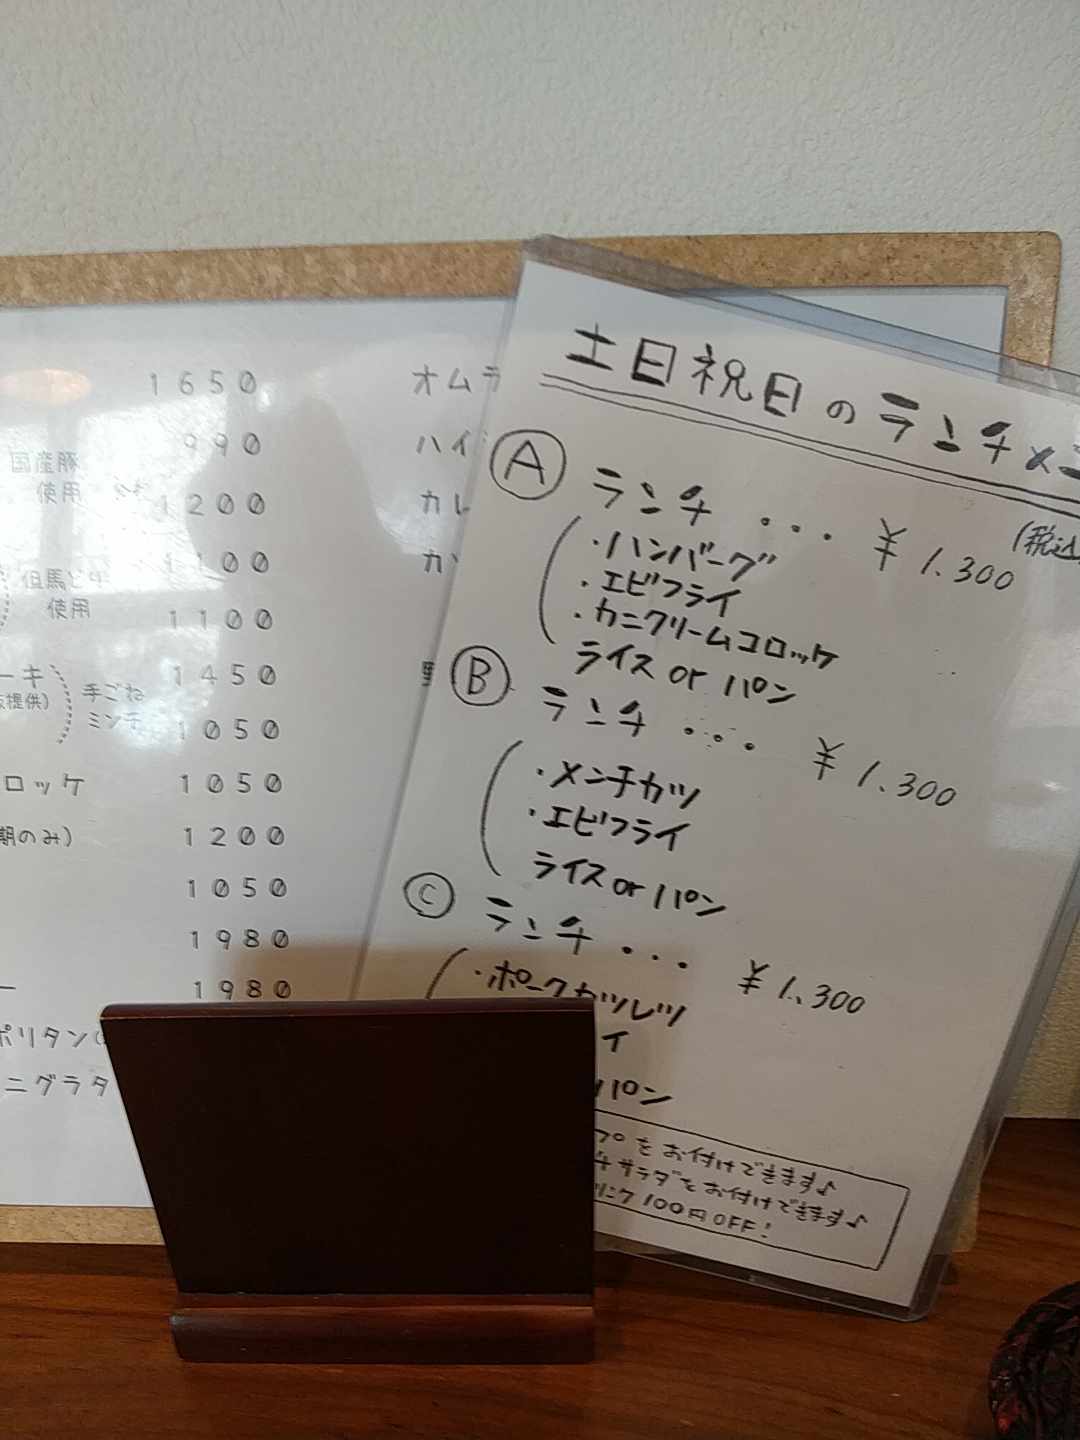 1650
990
国産豚
使用
1200
1100
但馬どり
使用
1100
ーキ
提供)
手ごね
ミンチ
1450
1050
ロッケ 1050
期のみ) 1200
1050
1980
ー 1980
ポリタン
ニグラタ
オムラ
ハイ
カレ
カツ
土日祝日のランチメ
(税込
Ⓐ ランチ ... ¥1.300
・ハンバーグ
・エビフライ
・カニクリームコロッケ
ライス or パン
Ⓑ ランチ ... ¥1.300
・メンチカツ
・エビフライ
ライス or パン
Ⓒ ランチ ... ¥1.300
・ポークカツレツ
イ
パン
プをお付けできます♪
サラダをお付けできます♪
リンク100円OFF!